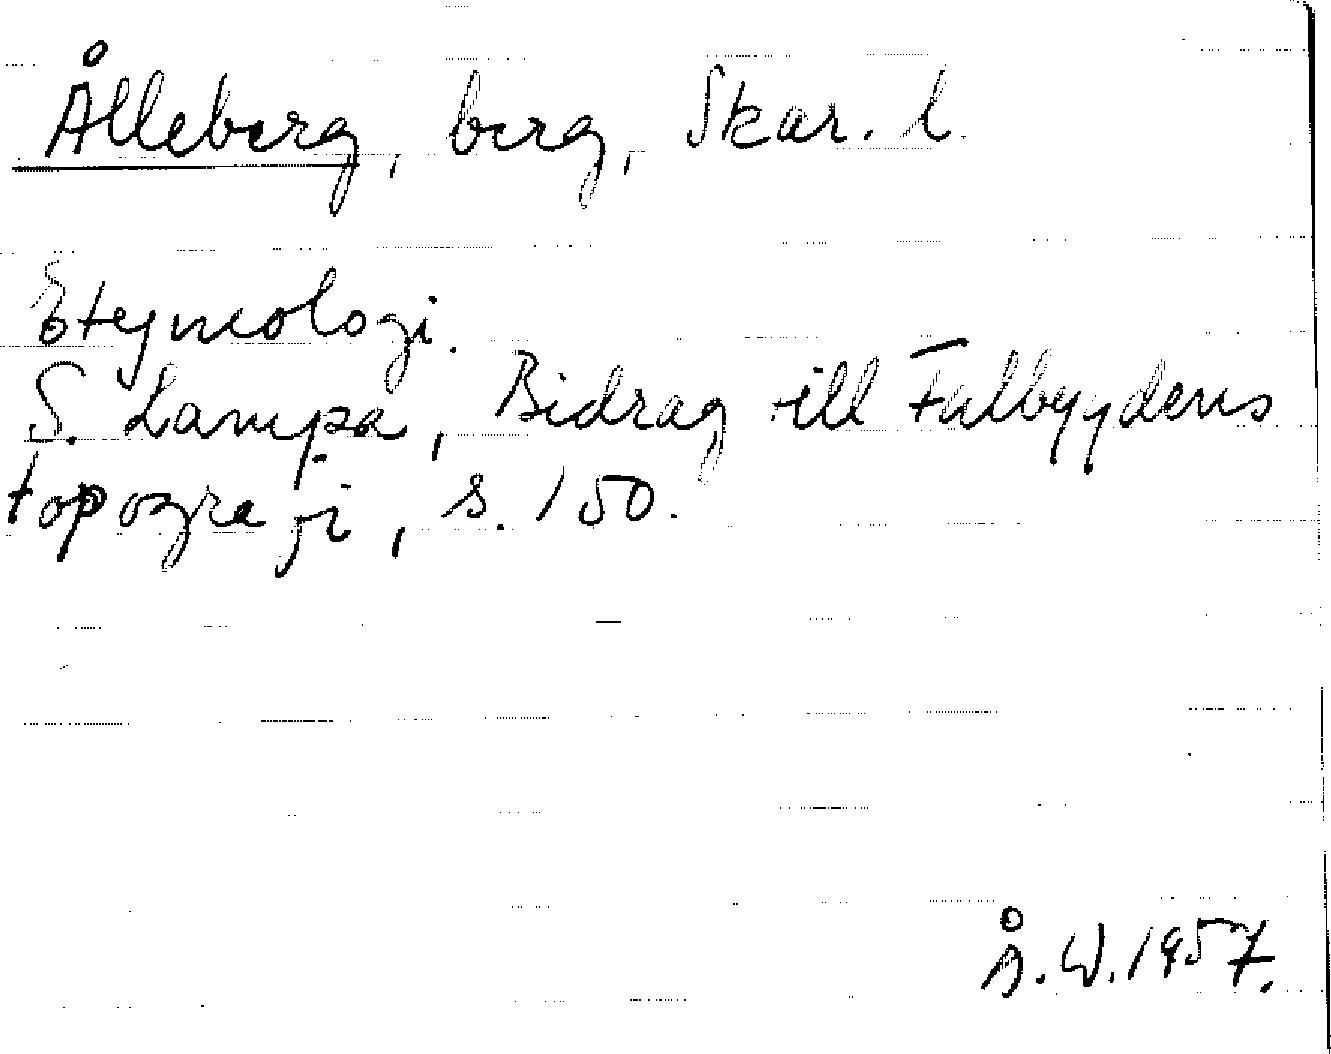 Ålleberg, berg, Skar. l.
Etymologi.
S. Lampa, Bidrag till Falbygdens
topografi, s. 150.
Å. W. 1957.